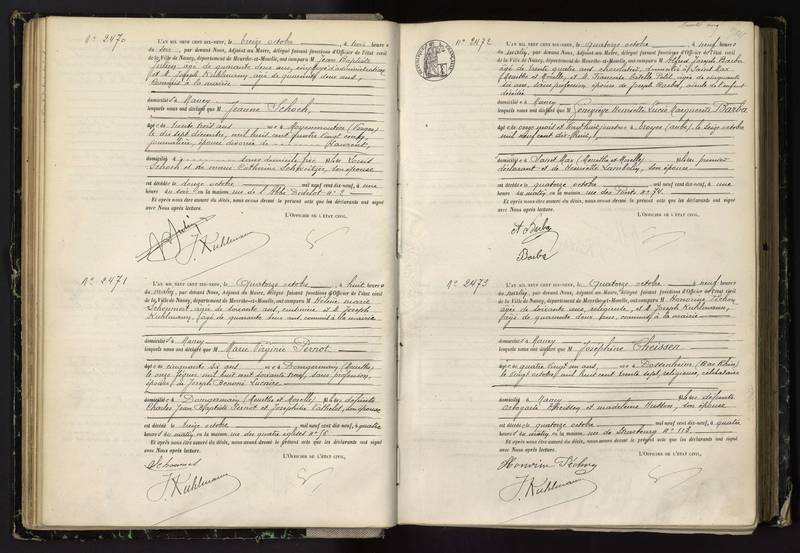 N° 2470
L'AN MIL NEUF CENT DIX-NEUF, le treize octobre, à trois heures
du soir, par devant Nous, Adjoint au Maire, délégué faisant fonctions d'Officier de l'état civil
de la Ville de Nancy, département de Meurthe-et-Moselle, ont comparu M Jean Baptiste
âgé de quarante deux ans, employé d'administration
et M. Joseph Kuhlmann, âgé de quarante deux ans,
commis à la mairie
domiciliés à Nancy
lesquels nous ont déclaré que M Jeanne Schoch,
âgée de trente trois ans née à Moyenmoutier (Vosges)
le dix sept décembre, mil huit cent quatre vingt cinq,
journalière, épouse divorcée de Laurent,
domiciliée à sans domicile fixe fille de Louis
Schoch et de Marie Catherine son épouse
est décédée le douze octobre mil neuf cent dix-neuf, à une
heure du soir en la maison rue de l'Abbé Didelot n° 2
Et après nous être assuré du décès, nous avons dressé le présent acte que les déclarants ont signé
avec Nous après lecture.
L'OFFICIER DE L'ÉTAT CIVIL,
J. Kuhlmann
N° 2471
L'AN MIL NEUF CENT DIX-NEUF, le Quatorze octobre, à huit heures
du matin, par devant Nous, Adjoint au Maire, délégué faisant fonctions d'Officier de l'état civil
de la Ville de Nancy, département de Meurthe-et-Moselle, ont comparu M Hélène Marie
âgée de soixante ans, et M. Joseph
Kuhlmann, âgé de quarante deux ans, commis à la mairie
domiciliés à Nancy
lesquels nous ont déclaré que M Marie Virginie Pernot
âgée de cinquante six ans née à Dongermain (Meurthe)
le onze mil huit cent soixante trois, sans profession,
épouse de Joseph Benoni Lucaire
domiciliée à Dongermain (Meurthe et Moselle) fille des défunts
Charles Jean Baptiste Pernot et Joséphine son épouse
est décédée le treize octobre mil neuf cent dix-neuf, à quatre
heures du matin, en la maison rue des quatre églises n° 76
Et après nous être assuré du décès, nous avons dressé le présent acte que les déclarants ont signé
avec Nous après lecture.
L'OFFICIER DE L'ÉTAT CIVIL,
J. Kuhlmann
N° 2472
L'AN MIL NEUF CENT DIX-NEUF, le quatorze octobre, à neuf heures
du matin, par devant Nous, Adjoint au Maire, délégué faisant fonctions d'Officier de l'état civil
de la Ville de Nancy, département de Meurthe-et-Moselle, ont comparu M Alfred Joseph Barba
âgé de trente quatre ans, chocolatier, domicilié à Saint Max
(Meurthe et Moselle), et M. Françoise Estelle Petit, âgée de cinquante
six ans, sans profession, épouse de Joseph Barba, aïeule de l'enfant
décédée
domiciliée à Nancy
lesquels nous ont déclaré que M Geneviève Henriette Lucie Marguerite Barba
âgée de onze mois et vingt huit jours née à Troyes (Aube), le seize octobre
mil neuf cent dix huit,
domiciliée à Saint Max (Meurthe et Moselle) fille du premier
déclarant et de Henriette son épouse
est décédée le quatorze octobre mil neuf cent dix-neuf, à une
heure du matin, en la maison rue des Ponts n° 74
Et après nous être assuré du décès, nous avons dressé le présent acte que les déclarants ont signé
avec Nous après lecture.
L'OFFICIER DE L'ÉTAT CIVIL,
A Barba
Barba
N° 2473
L'AN MIL NEUF CENT DIX-NEUF, le Quatorze octobre, à neuf heures
du matin, par devant Nous, Adjoint au Maire, délégué faisant fonctions d'Officier de l'état civil
de la Ville de Nancy, département de Meurthe-et-Moselle, ont comparu M
âgée de soixante ans, religieuse, et M. Joseph Kuhlmann,
âgé de quarante deux ans, commis à la mairie
domiciliés à Nancy
lesquels nous ont déclaré que M Joséphine Theissen
âgée de quatre vingt un ans, née à Dossenheim (Bas Rhin)
le vingt octobre mil huit cent trente sept, religieuse, célibataire
domiciliée à Nancy fille des défunts
et Madeleine son épouse
est décédée le quatorze octobre mil neuf cent dix-neuf, à quatre
heures du matin, en la maison rue de Strasbourg n° 118
Et après nous être assuré du décès, nous avons dressé le présent acte que les déclarants ont signé
avec Nous après lecture.
L'OFFICIER DE L'ÉTAT CIVIL,
J. Kuhlmann